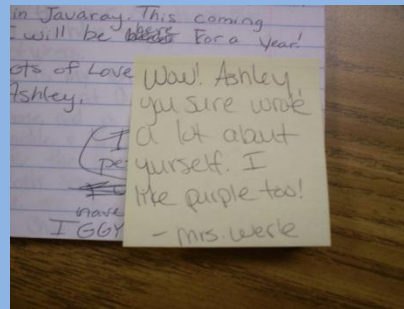 in Javaray. This coming
I will be here For a year!
ots of Love
Ashley.
(I
pe
have
IGGY
Wow! Ashley,
you sure wrote
a lot about
yurself. I
like purple too!
- Mrs. Werle